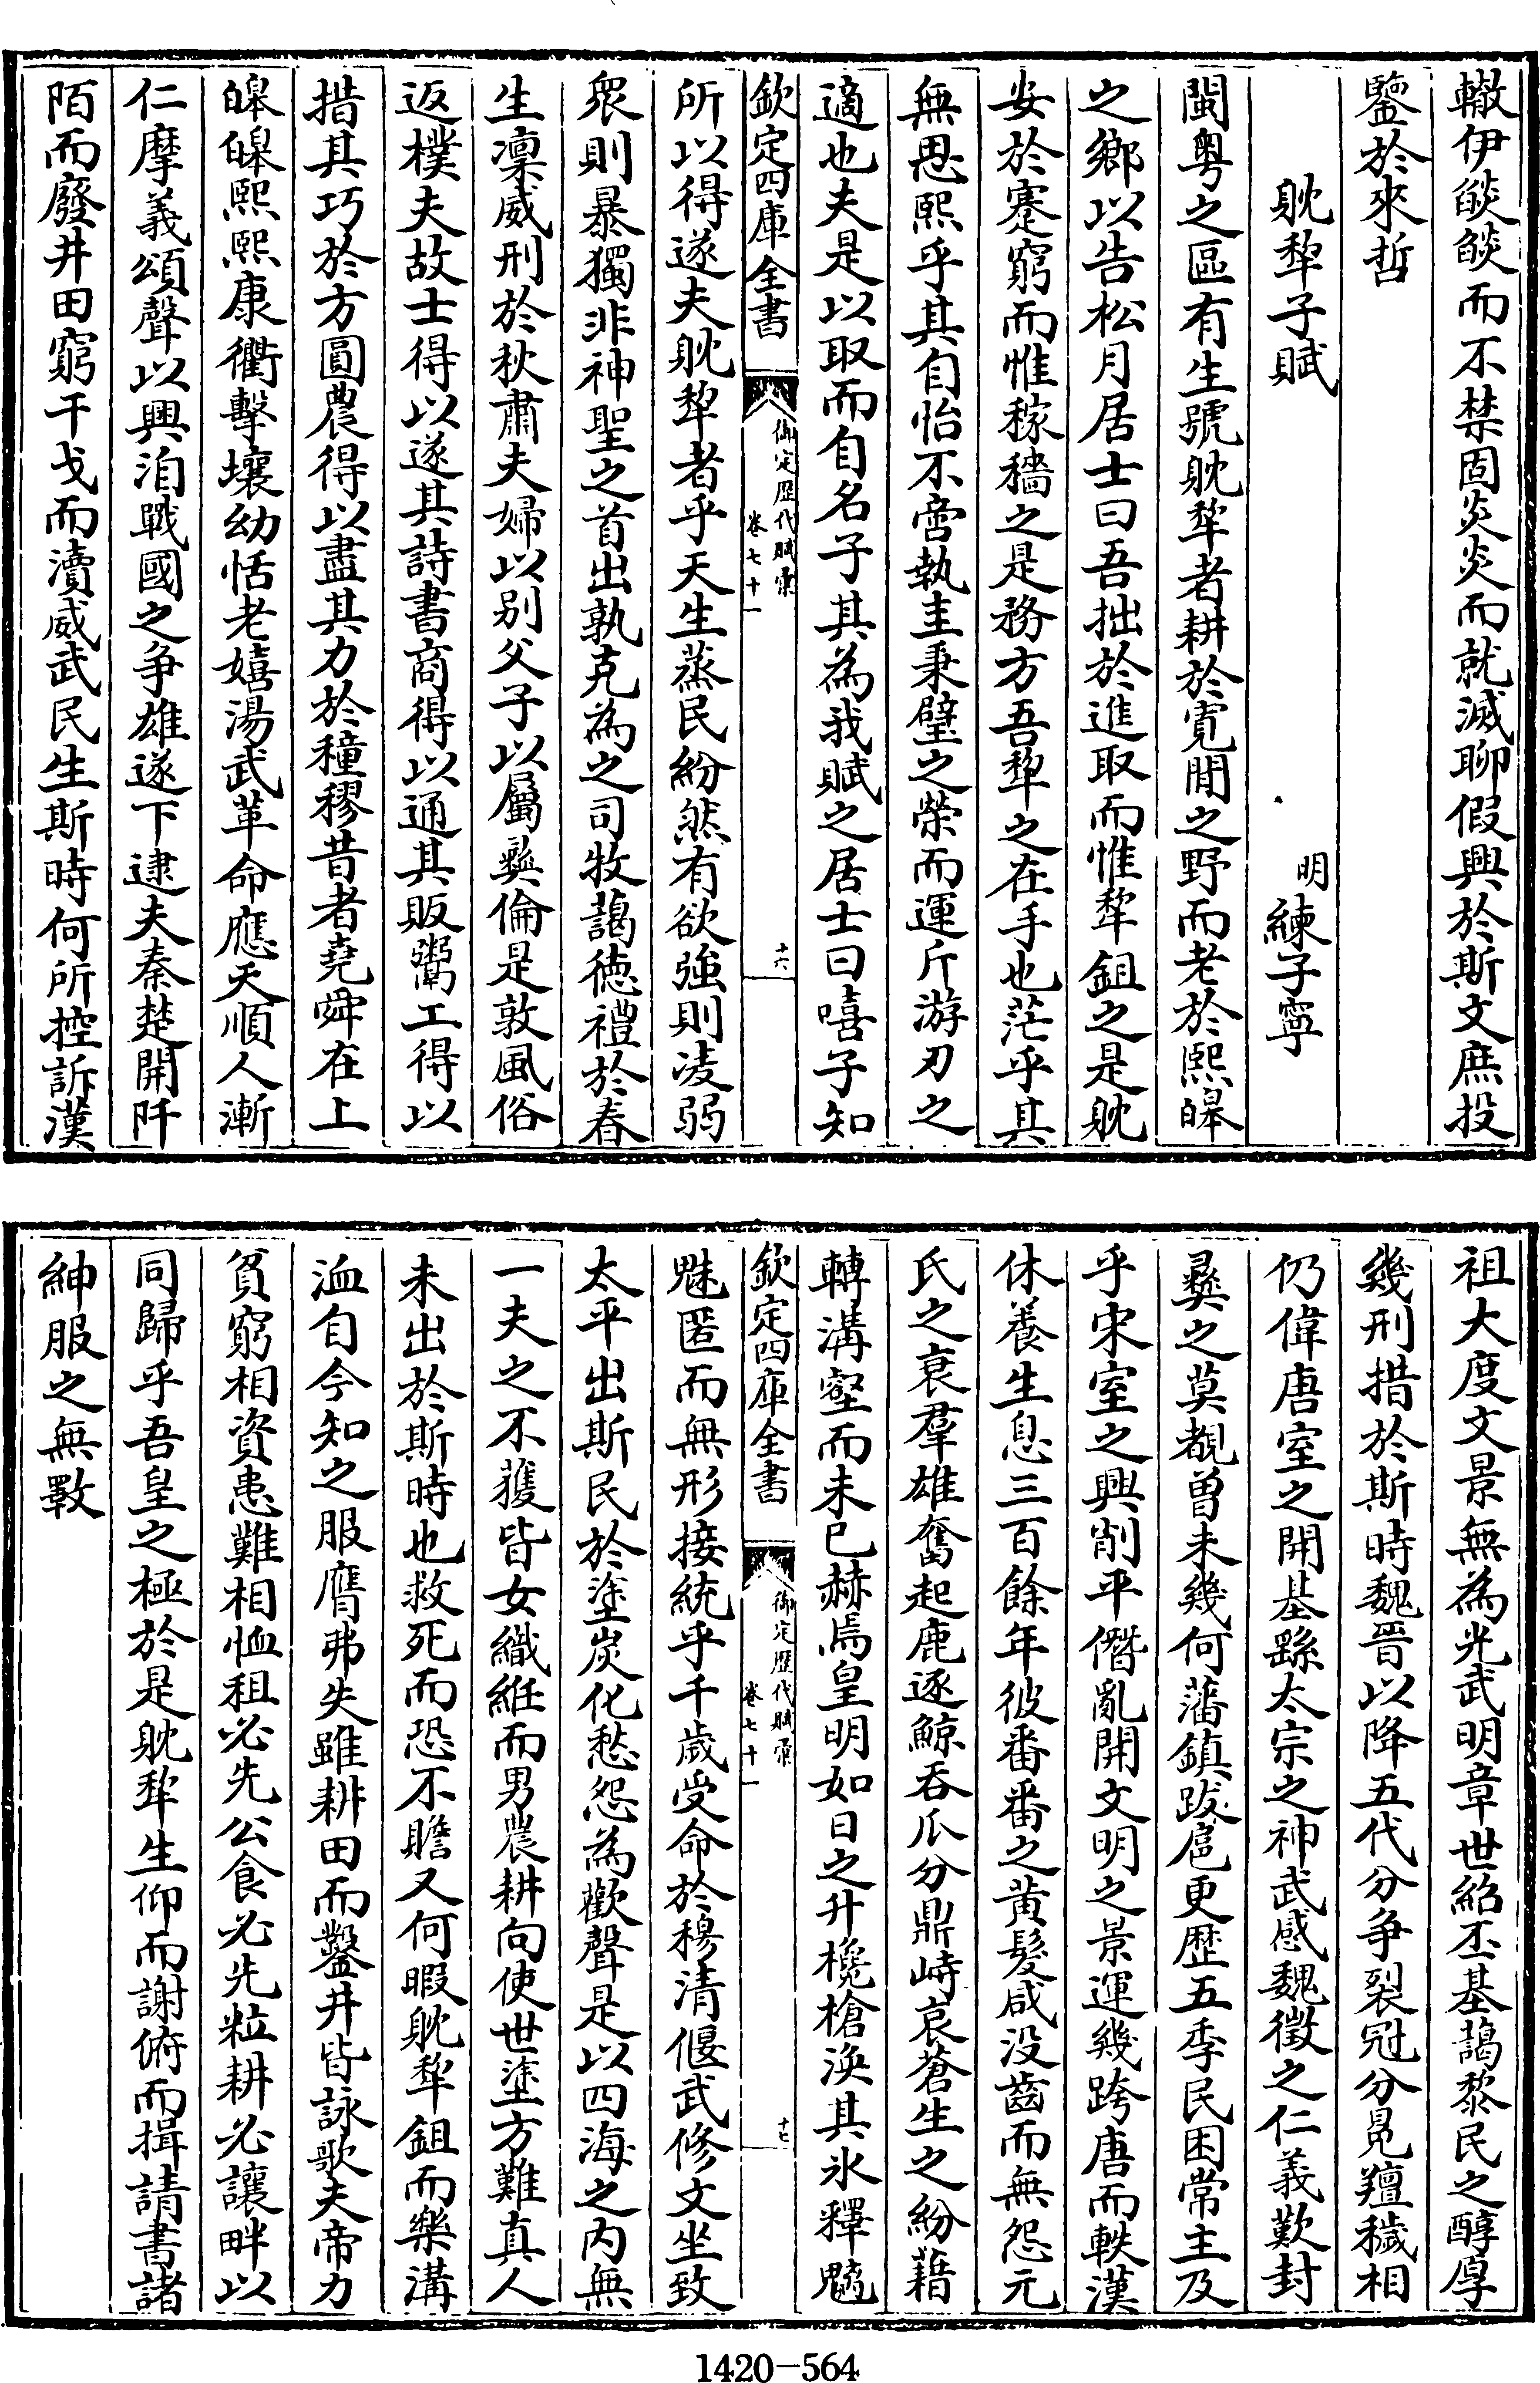 轍伊燄燄而不禁固炎炎而就滅聊假興於斯文庶投
鑒於來哲
躭犂子賦
明練子寧
閩粵之區有生號躭犂者耕於寛閒之野而老於熙皞
之鄉以告松月居士曰吾拙於進取而惟犂鉏之是躭
安於蹇窮而惟稼穡之是務方吾犂之在手也茫乎其
無思熙乎其自怡不啻執圭秉璧之榮而運斤游刃之
適也夫是以取而自名子其為我賦之居士曰嘻子知
欽定四庫全書
御定歷代賦彚
卷七十一
十六
所以得遂夫躭犂者乎天生蒸民紛然有欲強則凌弱
衆則暴獨非神聖之首出孰克為之司牧藹徳禮於春
生凛威刑於秋肅夫婦以别父子以屬彛倫是敦風俗
返樸夫故士得以遂其詩書商得以通其販鬻工得以
措其巧於方圓農得以盡其力於穜穋昔者堯舜在上
皞皞熙熙康衢擊壤幼恬老嬉湯武革命應天順人漸
仁摩義頌聲以興洎戰國之争雄遂下逮夫秦楚開阡
陌而廢井田窮干戈而瀆威武民生斯時何所控訴漢
祖大度文景無為光武明章世紹丕基藹黎民之醇厚
幾刑措於斯時魏晉以降五代分争裂冠分冕羶穢相
仍偉唐室之開基繇太宗之神武感魏徵之仁義歎封
彞之莫覩曽未幾何藩鎮跋扈更歴五季民困常主及
乎宋室之興削平僭亂開文明之景運幾跨唐而軼漢
休養生息三百餘年彼番番之黄髮咸没齒而無怨元
氏之衰羣雄奮起鹿逐鯨吞瓜分鼎峙哀蒼生之紛藉
轉溝壑而未已赫焉皇明如日之升欃槍渙其氷釋魑
欽定四庫全書
御定歷代賦彚
卷七十一
十七
魅匿而無形接統乎千歳受命於穆清偃武修文坐致
太平出斯民於塗炭化愁怨為歡聲是以四海之内無
一夫之不蒦皆女織絍而男農耕向使世塗方難真人
未出於斯時也救死而恐不贍又何暇躭犂鉏而樂溝
洫自今知之服膺弗失雖耕田而鑿井皆詠歌夫帝力
貧窮相資患難相恤租必先公食必先粒耕必讓畔以
同歸乎吾皇之極於是躭犂生仰而謝俯而揖請書諸
紳服之無斁
1420-564